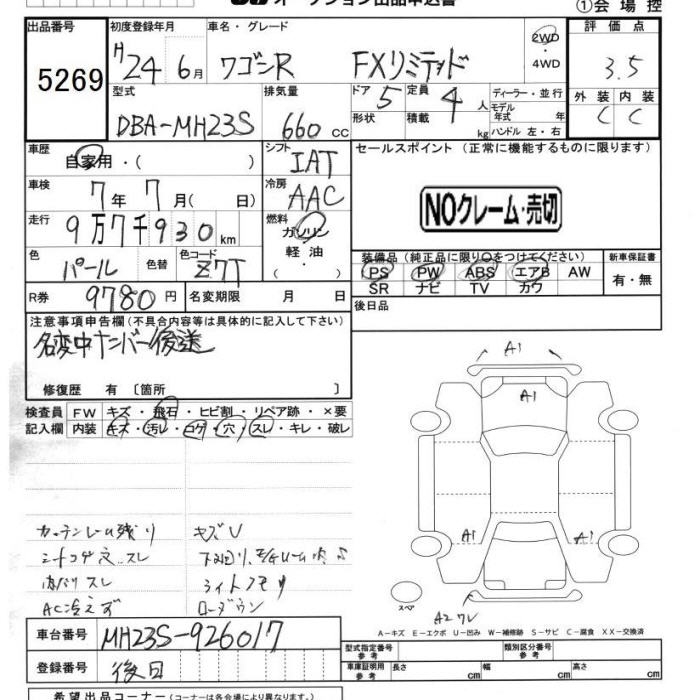 オークション出品申込書
①会場控
出品番号
5269
初度登録年月
H24年6月
車名・グレード
ワゴンR FXリミテッド
2WD
・4WD
評価点
3.5
型式
DBA-MH23S
排気量
660cc
ドア
5
形状
定員
4人
積載 kg
ディーラー・並行
モデル年式 年
ハンドル 左・右
外装 内装
C C
車歴
自家用・( )
シフト
IAT
セールスポイント (正常に機能するものに限ります)
車検
7年7月( 日)
冷房
AAC
NOクレーム・売切
走行
9万7千930km
燃料
ガソリン
軽油
・( )
色
パール
色替
色コード
Z7T
装備品 (純正品に限り○をつけてください)
PS PW ABS エアB AW
SR ナビ TV カワ
新車保証書
有・無
R券
9780円
名変期限 月 日
後日品
注意事項申告欄(不具合内容等は具体的に記入して下さい)
名変中ナンバー後送
修復歴 有 〔箇所 〕
検査員
記入欄
FW キズ・飛石・ヒビ割・リペア跡・×要
内装 キズ・汚レ・コゲ・穴・スレ・キレ・破レ
カーテンレール残り キズU
シートコゲ穴、スレ
内ハリスレ ライトクモリ
AC冷えず ローダウン
A1
A1
A1
A1
スペア
A2ワレ
A-キズ E-エクボ U-凹み W-補修跡 S-サビ C-腐食 XX-交換済
車台番号
MH23S-926017
登録番号
後日
型式指定番号
参考
類別区分番号
参考
車庫証明用
参考
長さ cm 幅 cm 高さ cm
希望出品コーナー(コーナーは各会場により異なります。)